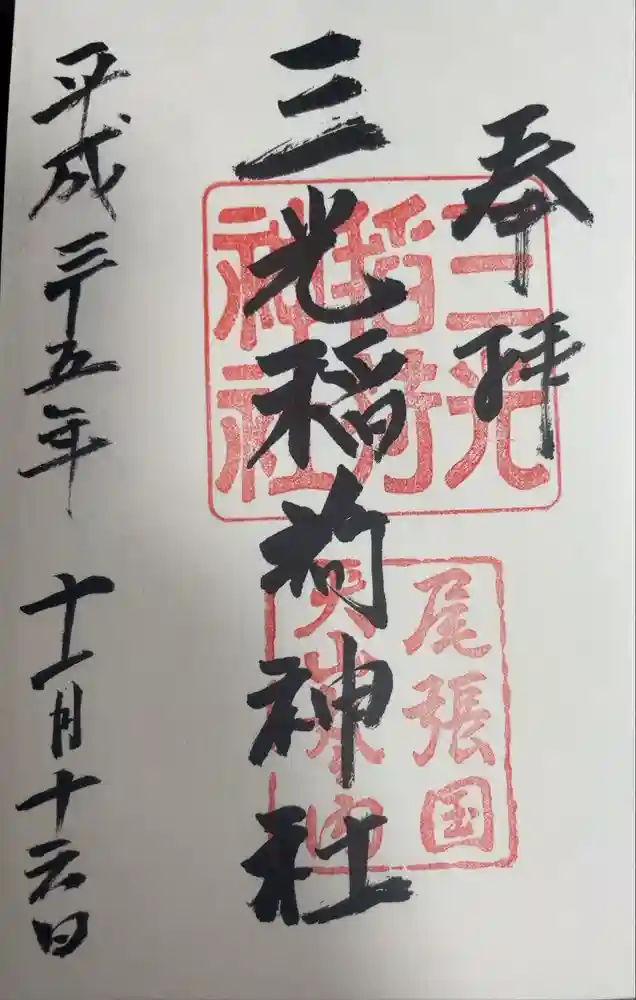 奉拝
三光稲荷神社
平成二十五年 十一月十六日
三光
稲荷
神社
尾張国